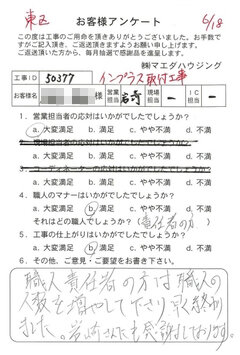 東区
6/18
お客様アンケート
この度は工事のご用命を頂きありがとうございました。お手数で
すがご記入頂き、ご返送頂きますようお願い申し上げます。
ご返送頂いた方から、毎月抽選で感謝品を進呈します。
㈱マエダハウジング
工事ID 50377 インプラス取付工事
お客様名 様 営業担当 岩崎 現場担当 - 工担 -
1. 営業担当者の応対はいかがでしたでしょうか?
a. 大変満足 b. 満足 c. やや不満 d. 不満
a. 大変満足 b. 満足 c. やや不満 d. 不満
a. 大変満足 b. 満足 c. やや不満 d. 不満
4. 職人のマナーはいかがでしたでしょうか?
a. 大変満足 b. 満足 c. やや不満 d. 不満
それはどの職人でしょうか?(責任者の方)
5. 工事の仕上がりはいかがでしたでしょうか?
a. 大変満足 b. 満足 c. やや不満 d. 不満
6. その他、ご意見・ご要望をお書き下さい。
職人責任者の方は職人の
人数を増やして下さり早く終わり
ました。岩崎さんにも感謝しております。